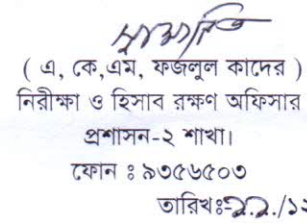 ( এ, কে,এম, ফজলুল কাদের )
নিরীক্ষা ও হিসাব রক্ষণ অফিসার
প্রশাসন-২ শাখা।
ফোন ঃ ৯৩৫৬৫০৩
তারিখঃ-২.২./১২